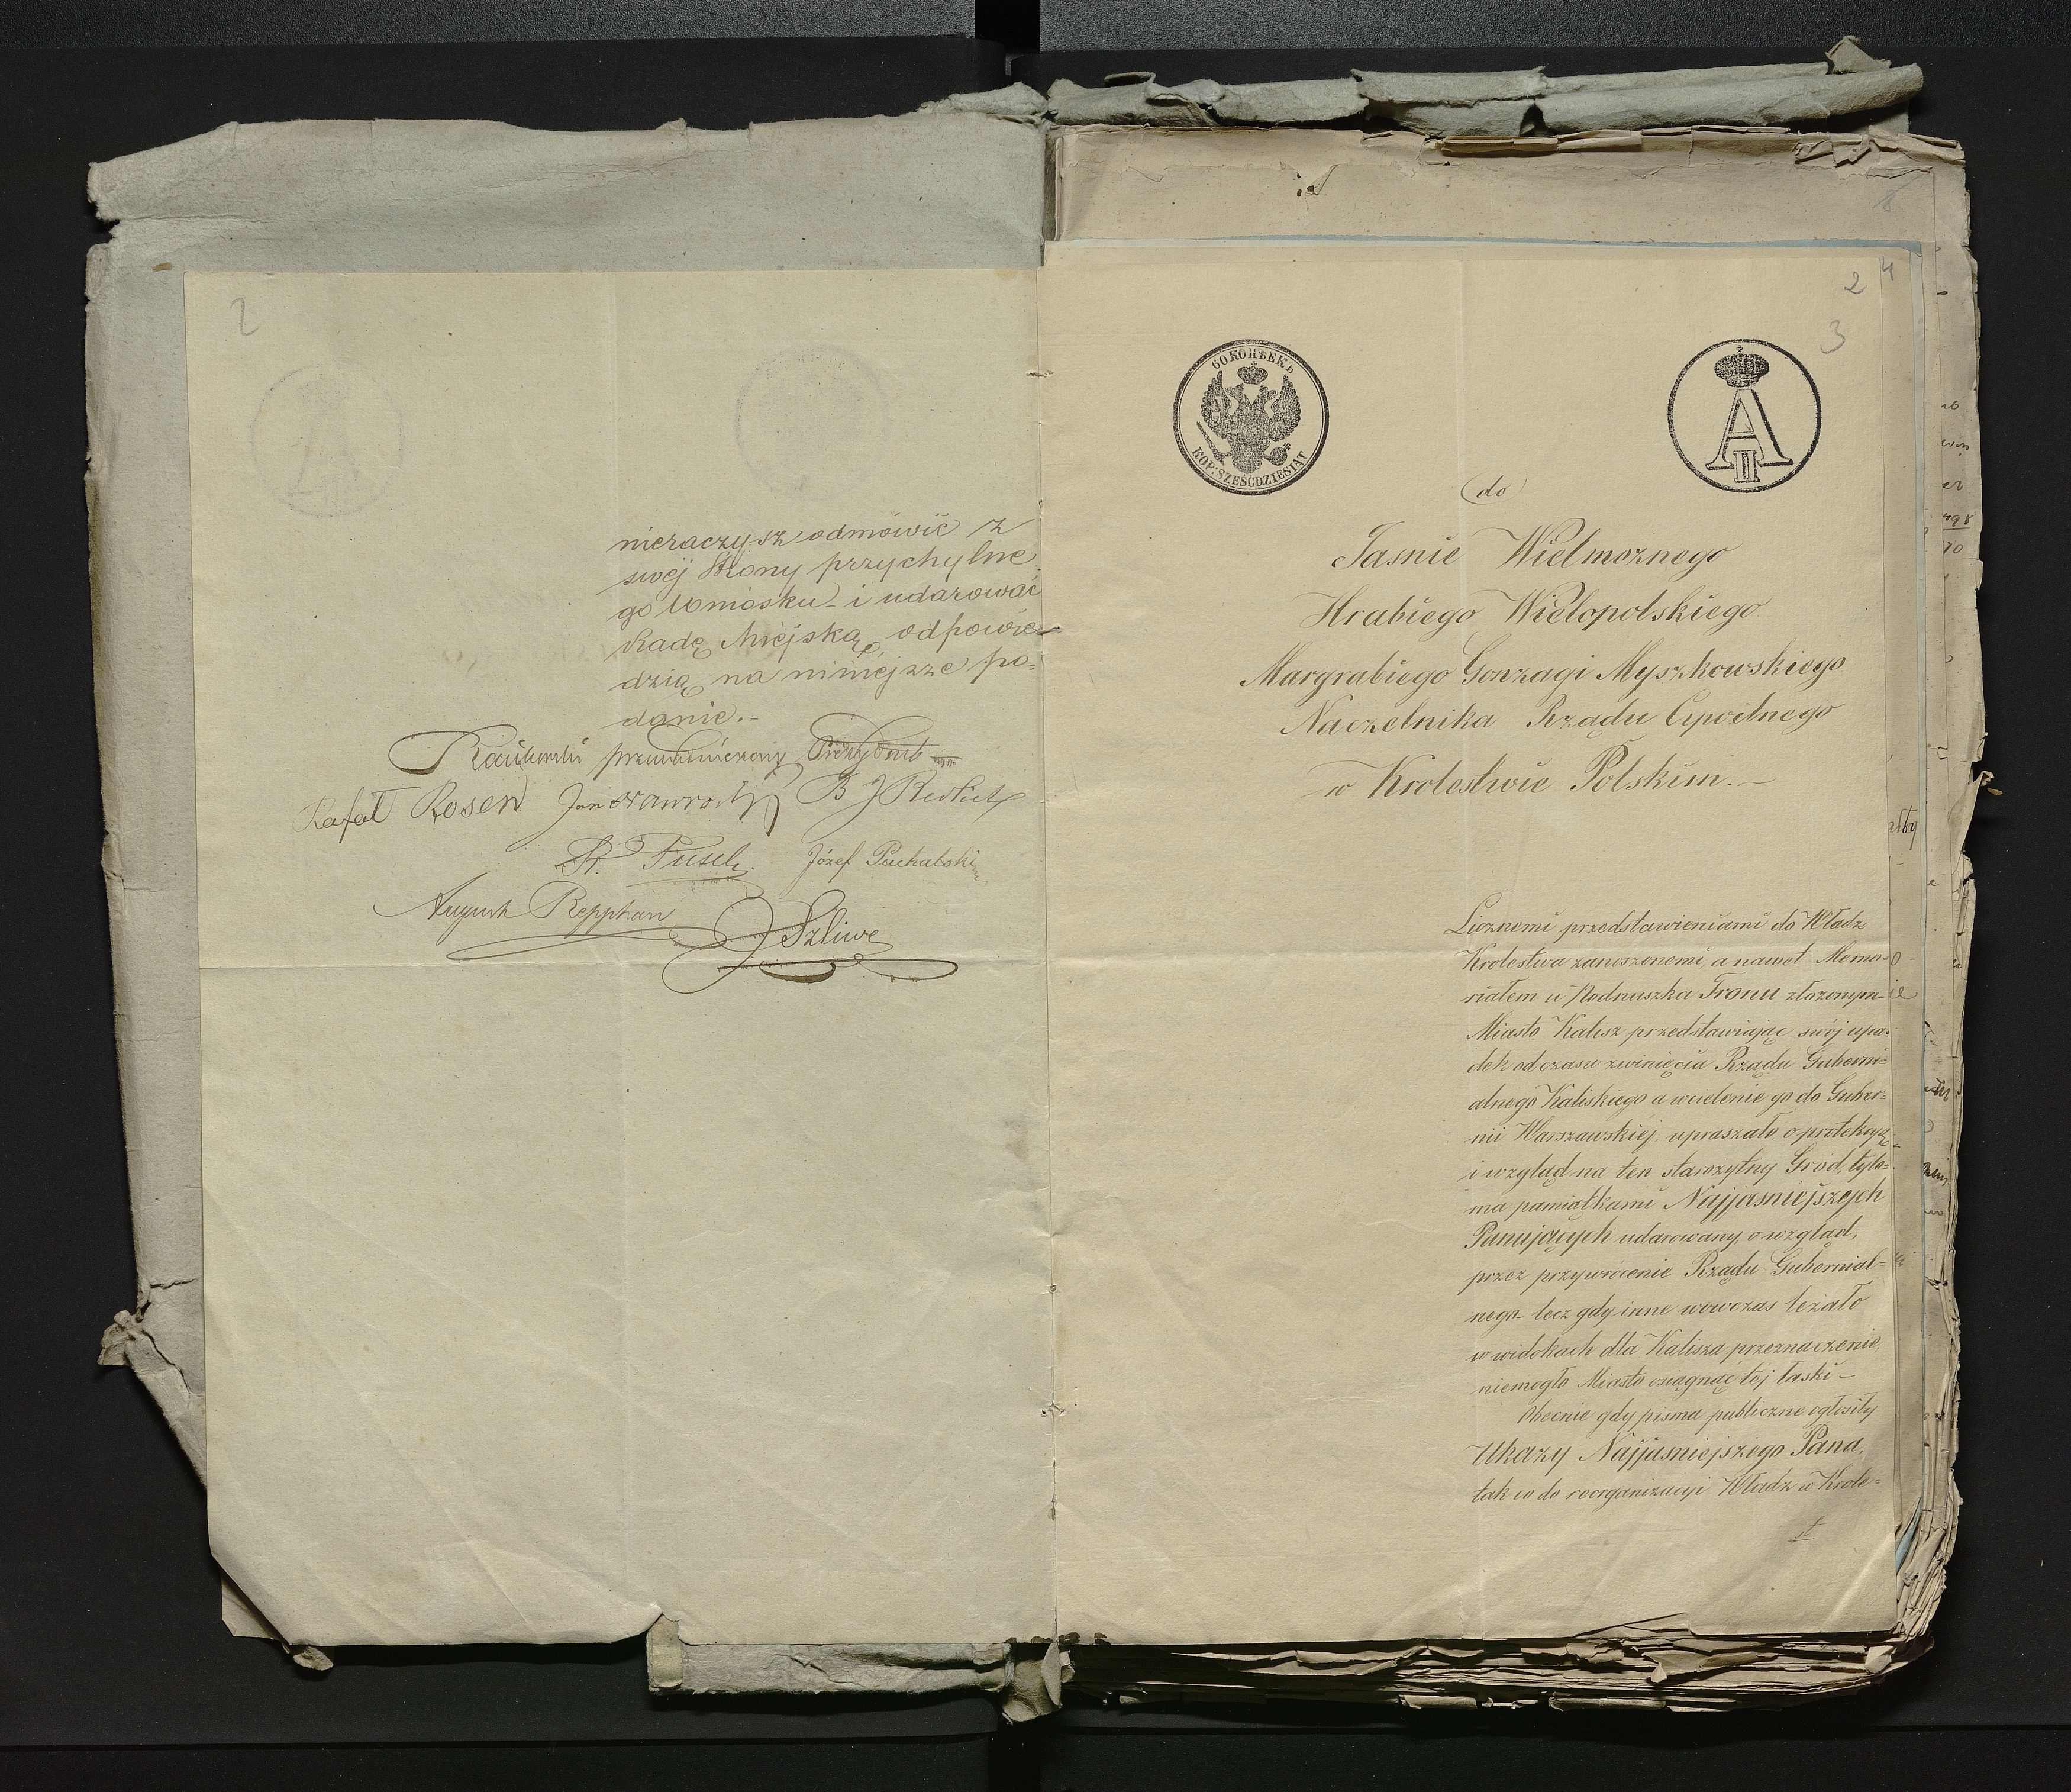 2
nieraczysz odmówić z
swej strony przychylne
go Wniosku - i udarować
Radę Miejską, odpowie-
dzią na niniejsze po=
danie.-
Prezydent
Rafał Rosen Jan Nawrocki B J Redlich
Fusch Józef Puchalski
August Repphan J Szliwe
2 4
3
60 КОПѢЕКЪ
KOP: SZEŚĆDZIESIĄT
A II
do
Jasnie Wielmoznego
Hrabiego Wielopolskiego
Margrabiego Gonzagi Myszkowskiego
Naczelnika Rządu Cywilnego
w Krolestwie Polskim.-
Licznemi przedstawieniami do Władz
Krolestwa zanoszonemi, a nawet Memo-
riałem u Podnuszka Tronu złożonym-
Miasto Kalisz przedstawiając swój upa=
dek od czasu zwinięcia Rządu Guberni=
alnego Kaliskiego a wcielenie go do Guber=
nii Warszawskiej, upraszało o protekcyą
i wzgląd na ten starożytny Gród, tylo=
ma pamiątkami Najjasniejszych
Panujących udarowany, o wzgląd,
przez przywrocenie Rządu Gubernial=
nego- lecz gdy inne wowczas leżało
w widokach dla Kalisza przeznaczenie,
niemogło Miasto osiągnąć tej łaski-
Obecnie gdy pisma publiczne ogłosiły
Ukazy Najjasniejszego Pana,
tak co do reorganizacyi Władz w Krole=
st